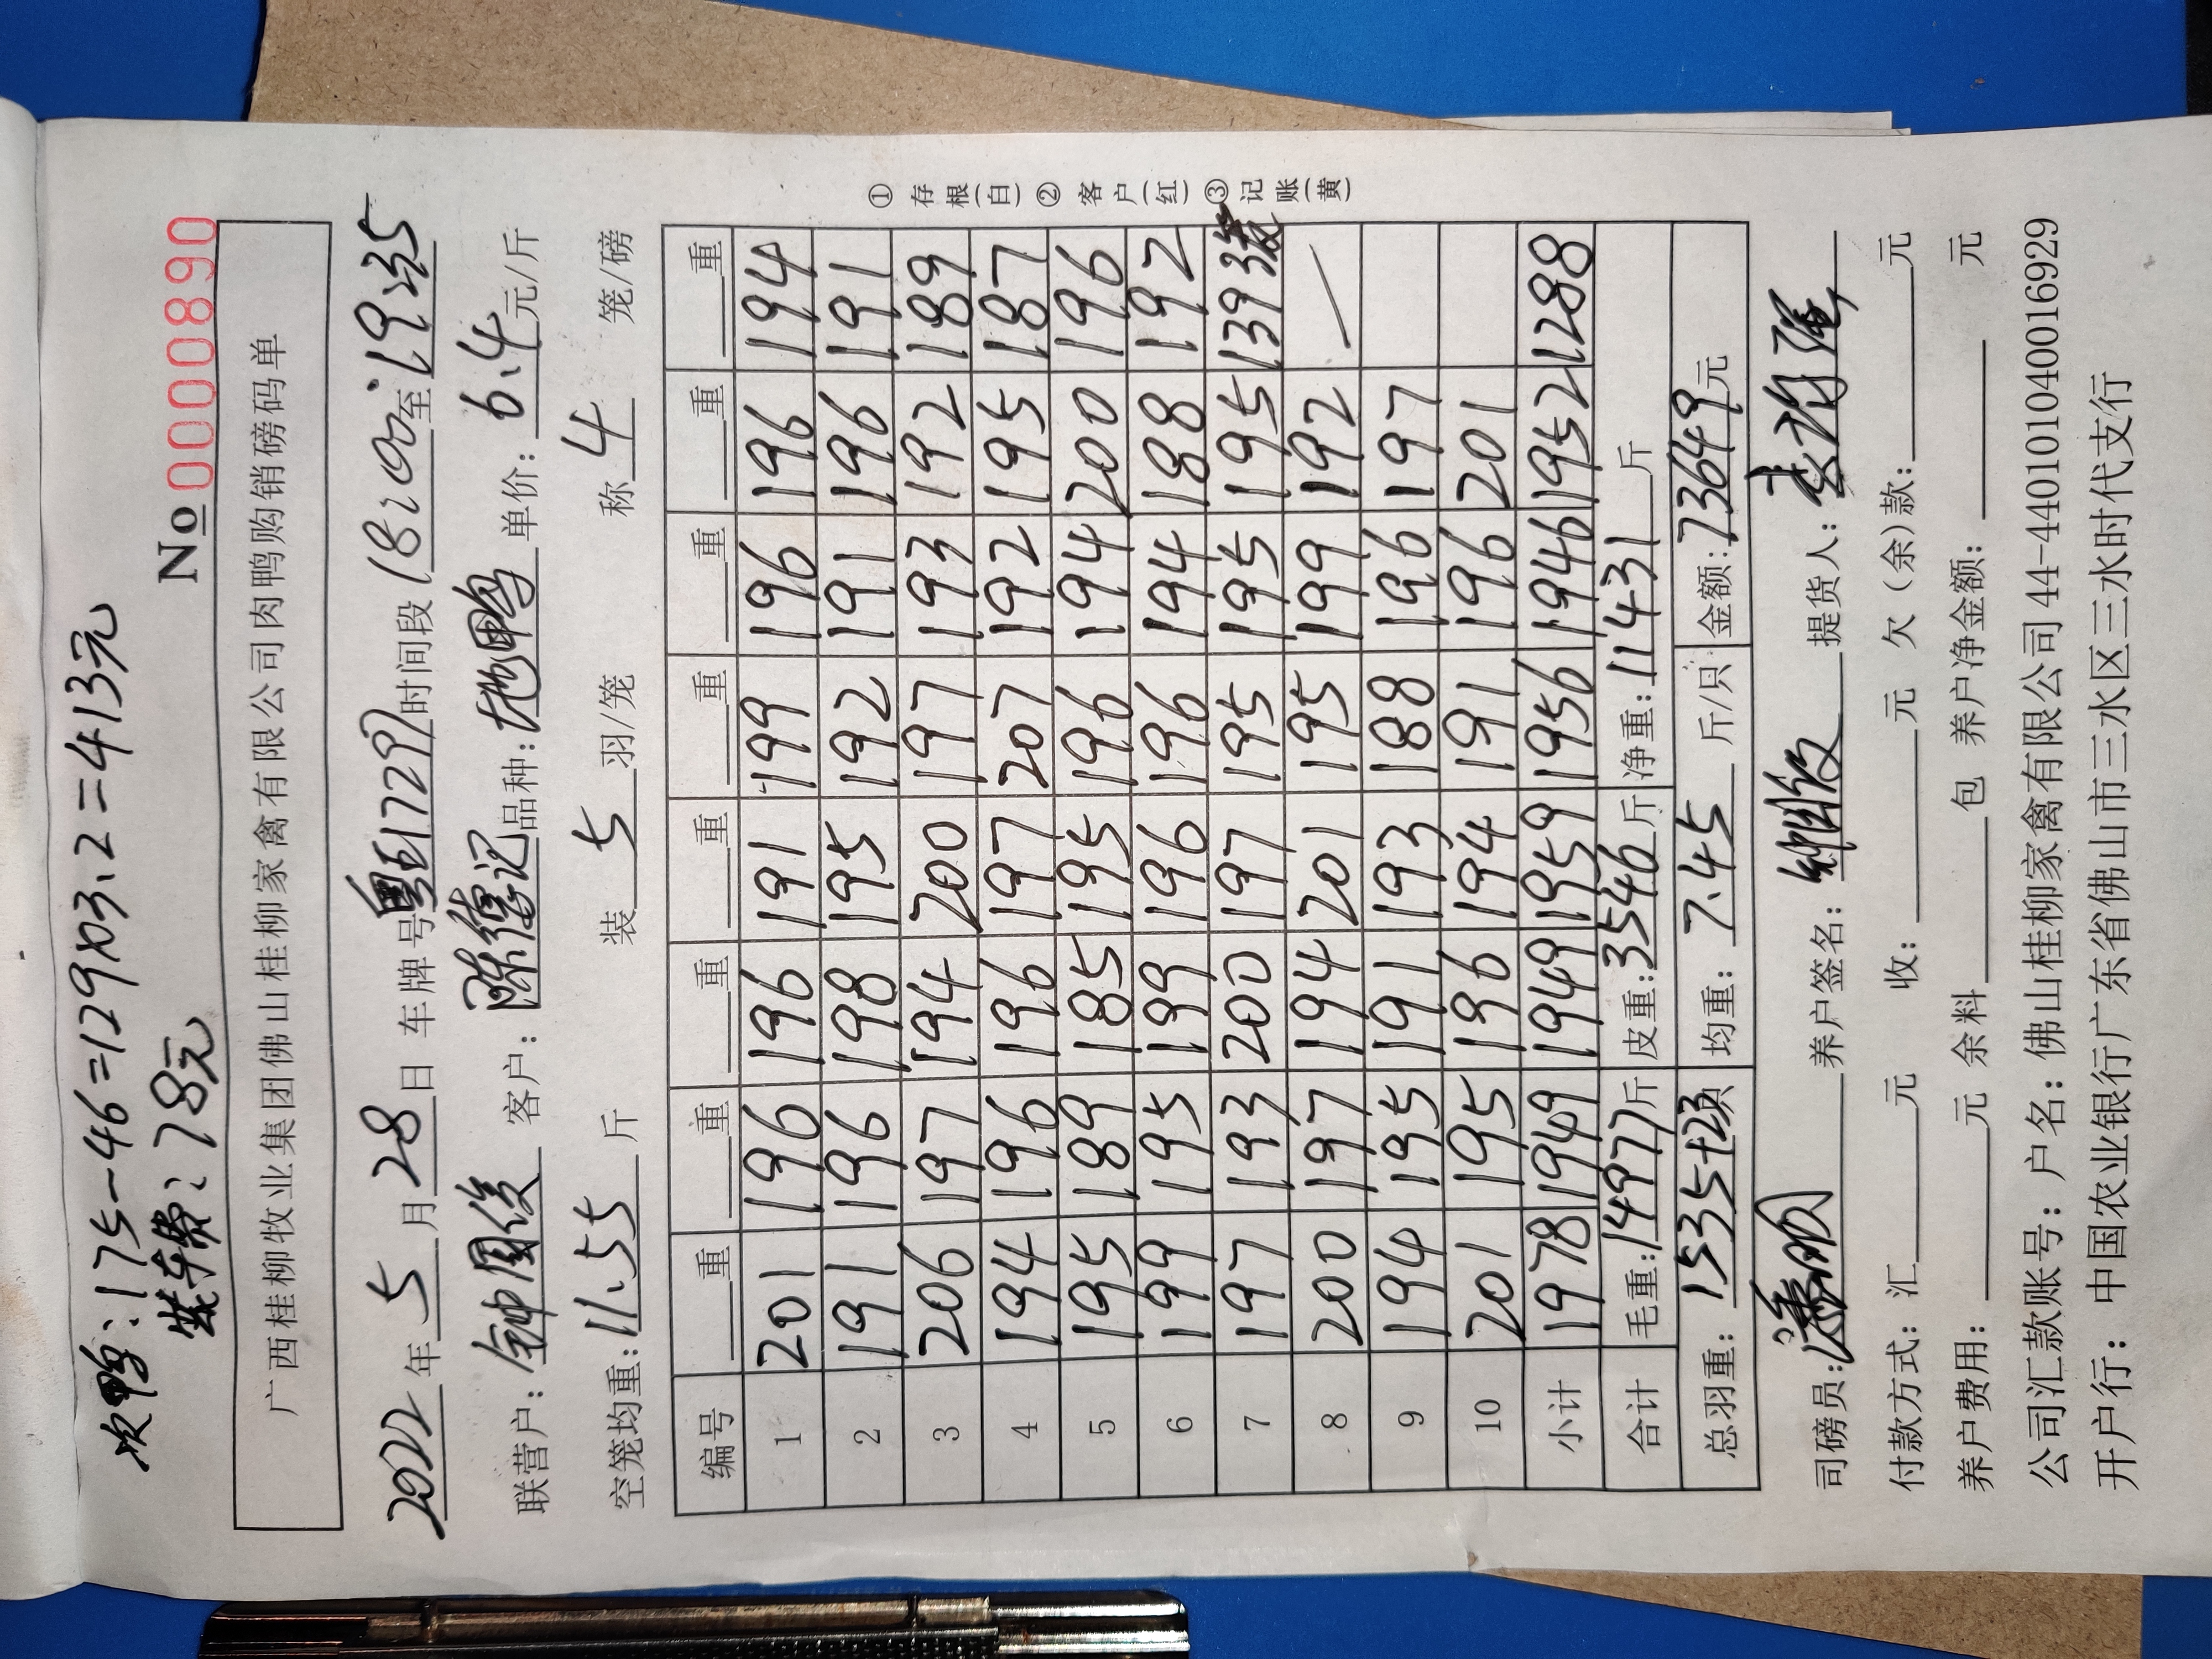 次鸭:175-46=129x3.2=413元
装车费:78元
No 0000890
广西桂柳牧业集团佛山桂柳家禽有限公司肉鸭购销磅码单
2022年5月28日 车牌号 17297 时间段 18:00至19:35
联营户: 钟国俊 客户: 陈德记 品种: 地鸭 单价: 6.4元/斤
空笼均重: 11.55斤 装 5 羽/笼 称 4 笼/磅
编号 重 重 重 重 重 重 重 重
1 201 196 196 191 199 196 196 194
2 191 196 198 195 192 191 196 191
3 206 197 194 200 197 193 192 189
4 194 196 196 197 207 192 195 187
5 195 189 185 195 196 194 200 196
6 199 195 199 196 196 194 188 192
7 197 193 200 197 195 195 195 139 3笼
8 200 197 194 201 195 199 192 —
9 194 195 191 193 188 196 197
10 201 195 196 194 191 196 201
小计 1978 1949 1949 1959 1956 1946 1952 1288
合计 毛重: 14977斤 皮重: 3546斤 净重: 11431斤
总羽重: 1535 均重: 7.45 斤/只 金额: 73649元
司磅员: 养户签名: 提货人:
付款方式: 汇 元 收: 元 欠(余)款: 元
养户费用: 元 余料 包 养户净金额: 元
公司汇款账号: 户名: 佛山桂柳家禽有限公司 44-440101040016929
开户行: 中国农业银行广东省佛山市三水区三水时代支行
① 存根(白) ② 客户(红) ③ 记账(黄)